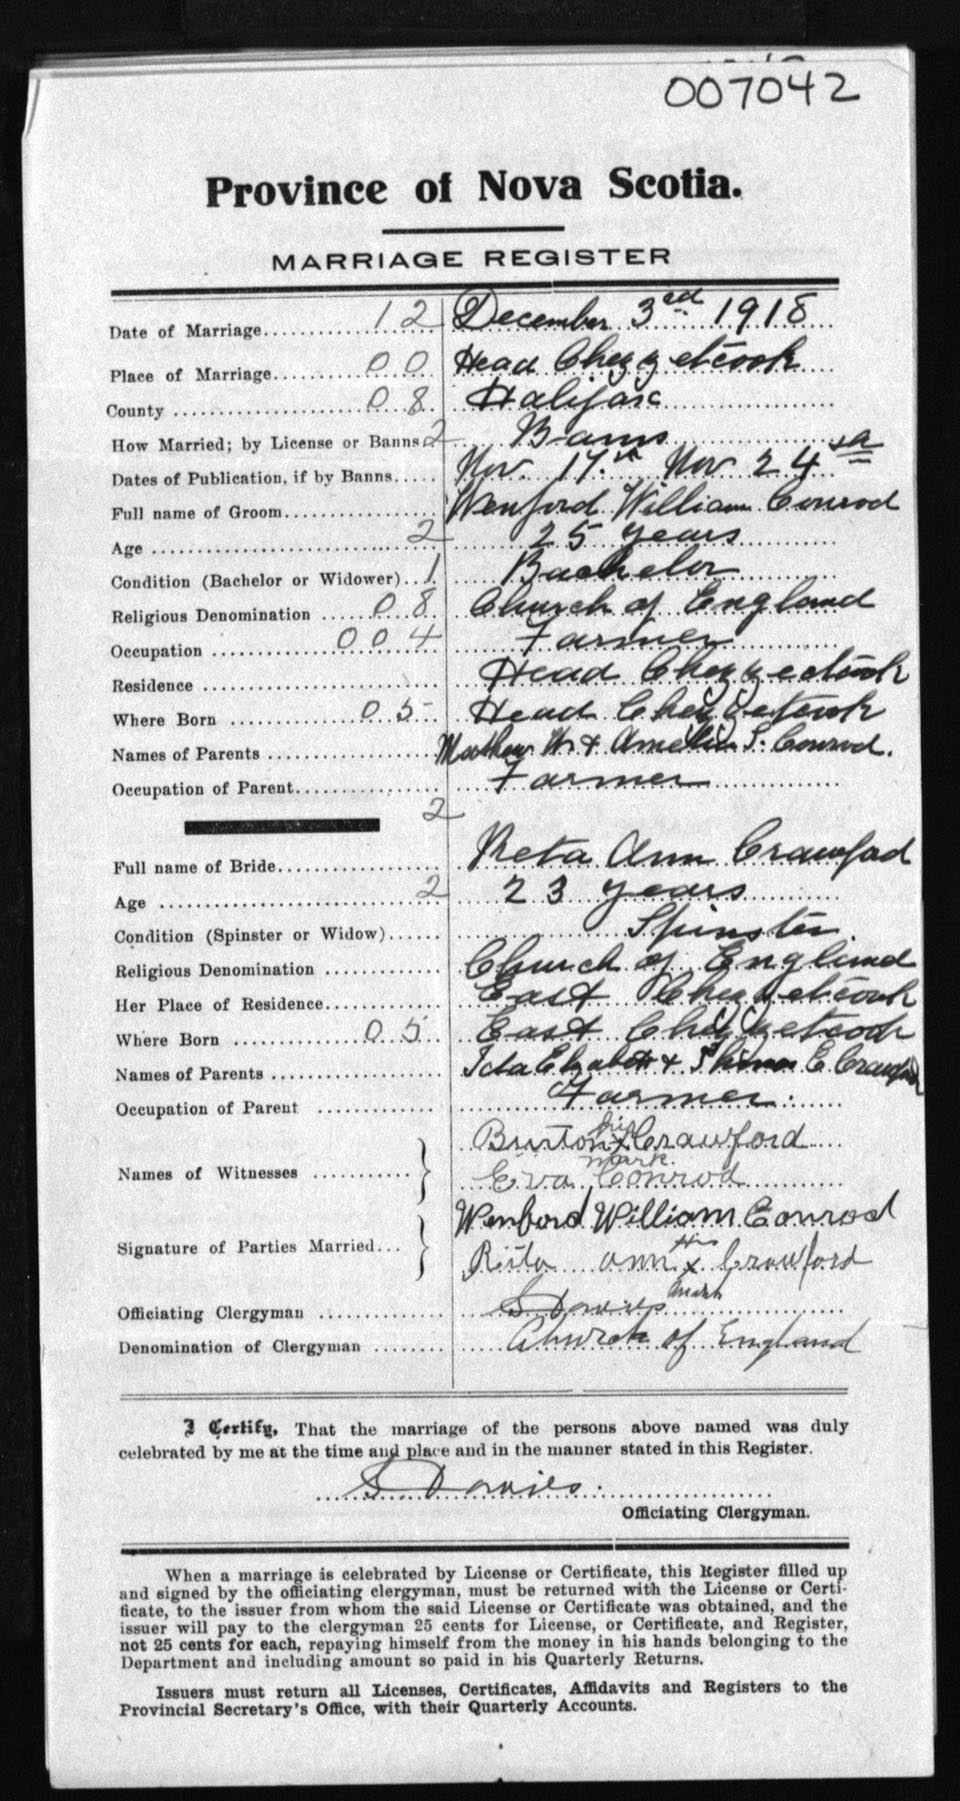 007042
Province of Nova Scotia.
MARRIAGE REGISTER
Date of Marriage 12 December 3rd 1918
Place of Marriage 00 Head Chezzetcook
County 08 Halifax
How Married; by License or Banns 2 Banns
Dates of Publication, if by Banns Nov. 17th Nov 24th
Full name of Groom Wenford William Conrod
Age 2 25 years
Condition (Bachelor or Widower) 1 Bachelor
Religious Denomination 08 Church of England
Occupation 004 Farmer
Residence Head Chezzetcook
Where Born 05 Head Chezzetcook
Names of Parents Mathew W. & Amelia S. Conrod.
Occupation of Parent Farmer
2
Full name of Bride Reta Ann Crawford
Age 2 23 years
Condition (Spinster or Widow) Spinster
Religious Denomination Church of England
Her Place of Residence East Chezzetcook
Where Born 05 East Chezzetcook
Names of Parents Elizabeth & E. Crawford
Occupation of Parent Farmer
Burton his x mark Crawford
Names of Witnesses Eva Conrod
Wenford William Conrod
Signature of Parties Married Rita ann her x mark Crawford
Officiating Clergyman S Davies
Denomination of Clergyman Church of England
I Certify, That the marriage of the persons above named was duly
celebrated by me at the time and place and in the manner stated in this Register.
S Davies
Officiating Clergyman.
When a marriage is celebrated by License or Certificate, this Register filled up
and signed by the officiating clergyman, must be returned with the License or Certi-
ficate, to the issuer from whom the said License or Certificate was obtained, and the
issuer will pay to the clergyman 25 cents for License, or Certificate, and Register,
not 25 cents for each, repaying himself from the money in his hands belonging to the
Department and including amount so paid in his Quarterly Returns.
Issuers must return all Licenses, Certificates, Affidavits and Registers to the
Provincial Secretary's Office, with their Quarterly Accounts.